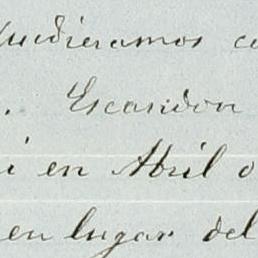 pudieramos co
. Escandon
i en Abril o
en lugar del